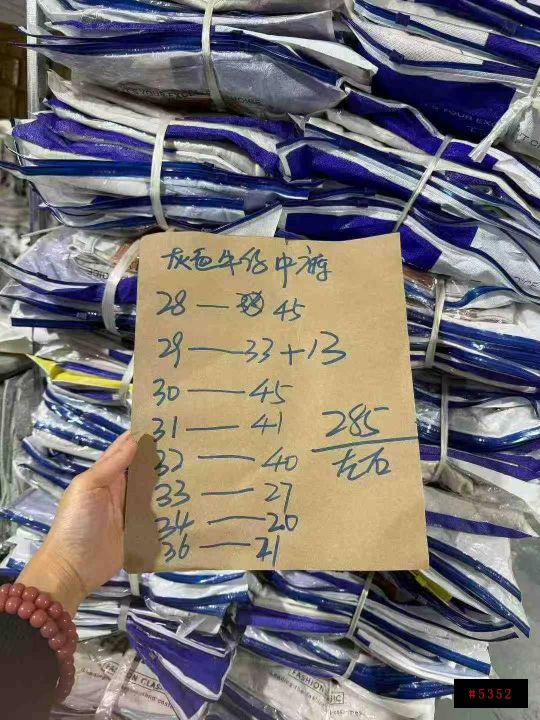 灰色牛仔中裤
28 — 45
29 — 33+13
30 — 45
31 — 41
32 — 40
33 — 27
34 — 20
36 — 21
285
左右
FASHION
#5352